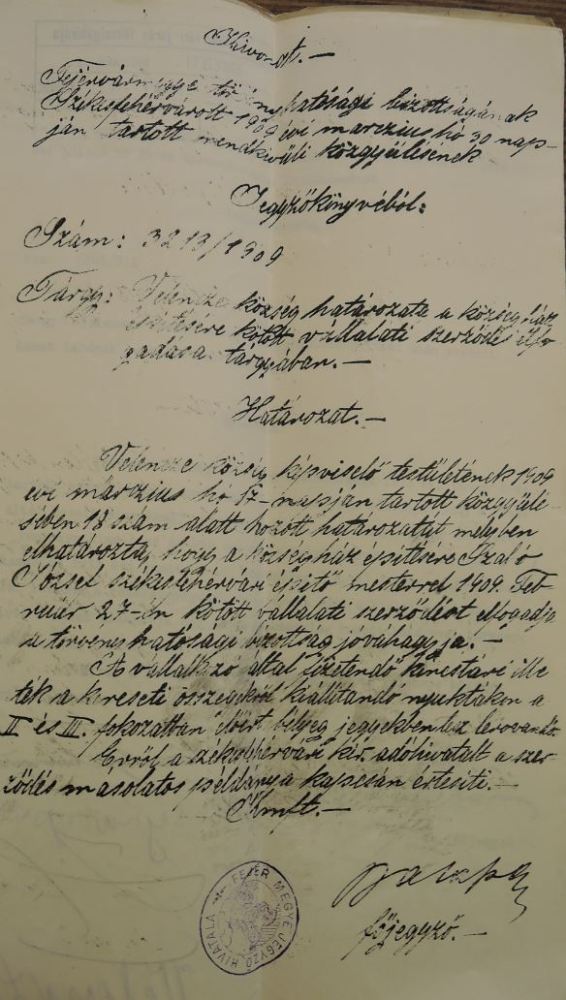 Kivonat.—
Fejérvármegye törvényhatósági bizottságának
Székesfehérvárott 1909 évi márczius hó 30 nap-
ján tartott rendkivüli közgyülésének
Jegyzőkönyvéből:
Szám: 3213/1909
Tárgy: Velencze község határozata a község ház
épitésére kötött vállalati szerződés elfo-
gadása tárgyában.—
Határozat.—
Velencze község képviselő testületének 1909
évi márczius hó 17-napján tartott közgyülé
sében 18 szám alatt hozott határozatát melyben
elhatározta, hogy a községház épitésére Szaló
József székesfehérvári épitő mesterrel 1909. Feb-
ruár 27-én kötött vállalati szerződést elfogadja
a törvényhatósági bizottság jóváhagyja!—
A vállalkozó által fizetendő kincstári ille
ték a kereseti összegekről kiállitandó nyugtákon a
II és III. fokozatban előirt bélyeg jegyekben lesz lerovandó.
Erről a székesfehérvári kir. adóhivatalt a szer-
ződés másolatos példánya kapcsán értesiti.—
Kmft.—
főjegyző.—
FEJÉR MEGYE JEGYZŐ HIVATALA